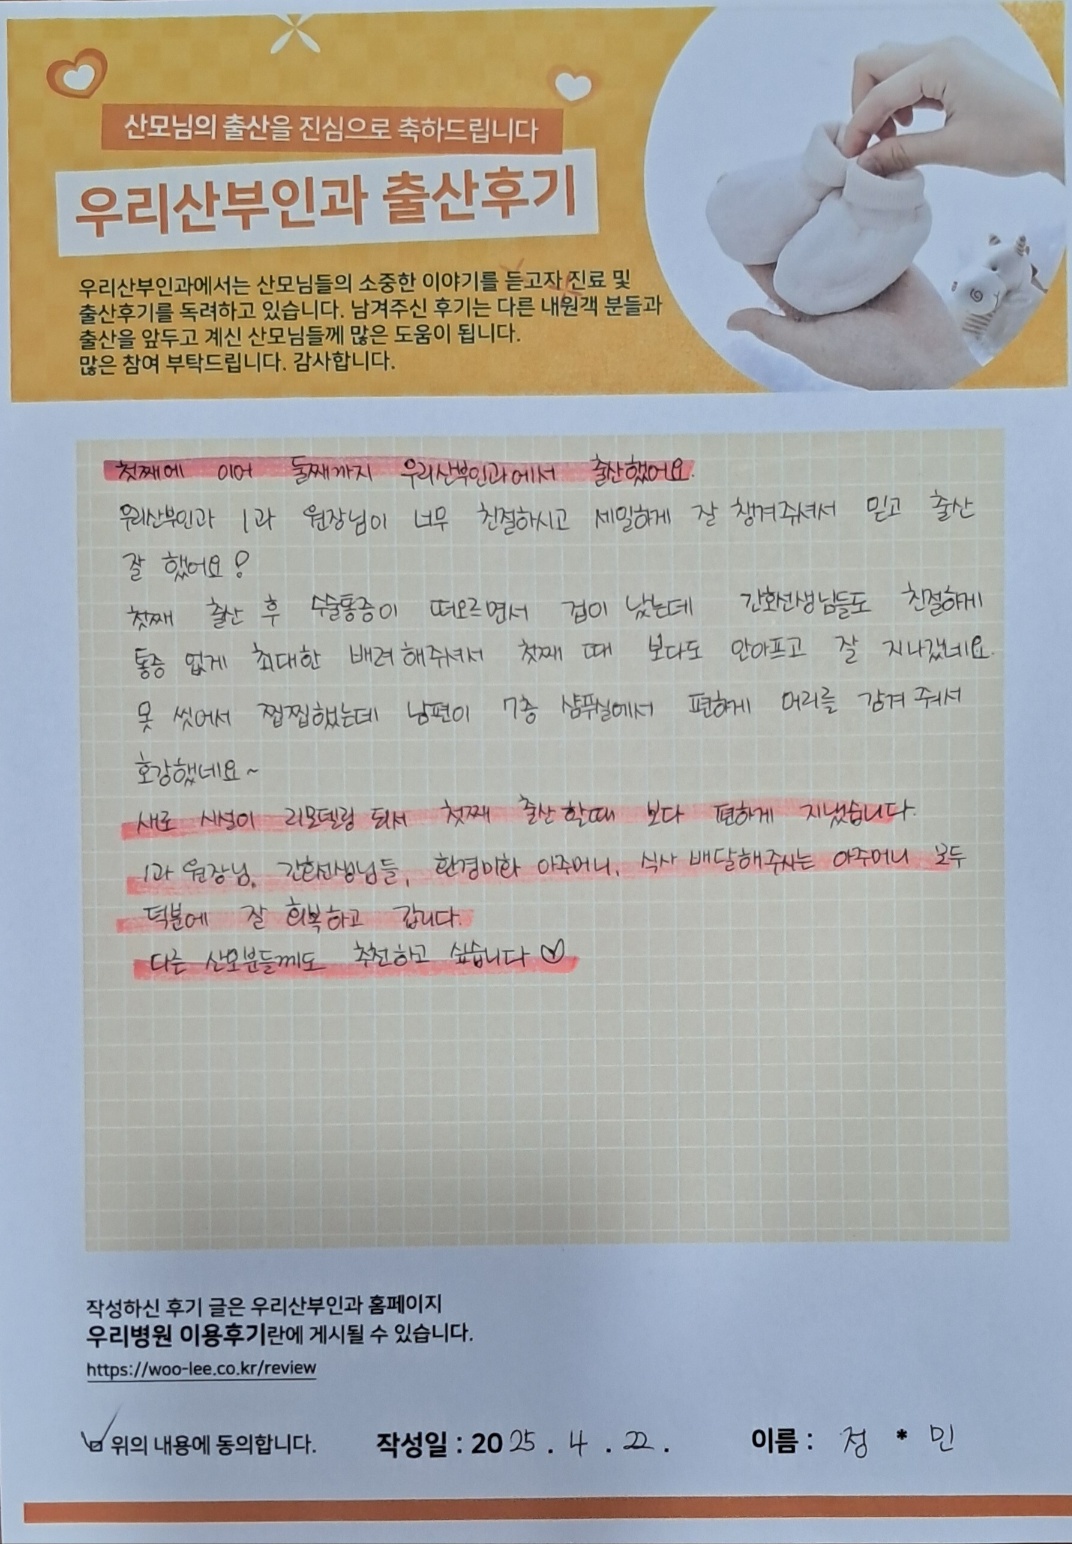 산모님의 출산을 진심으로 축하드립니다
우리산부인과 출산후기
우리산부인과에서는 산모님들의 소중한 이야기를 듣고자 진료 및
출산후기를 독려하고 있습니다. 남겨주신 후기는 다른 내원객 분들과
출산을 앞두고 계신 산모님들께 많은 도움이 됩니다.
많은 참여 부탁드립니다. 감사합니다.
첫째에 이어 둘째까지 우리산부인과에서 출산했어요.
우리산부인과 1과 원장님이 너무 친절하시고 세밀하게 잘 챙겨주셔서 믿고 출산
잘 했어요!
첫째 출산 후 수술통증이 떠오르면서 겁이 났는데 간호선생님들도 친절하게
통증 없게 최대한 배려해주셔서 첫째 때 보다도 안아프고 잘 지나갔네요.
못 씻어서 찝찝했는데 남편이 7층 샴푸실에서 편하게 머리를 감겨 줘서
호강했네요~
새로 시설이 리모델링 되서 첫째 출산 할때 보다 편하게 지냈습니다.
1과 원장님, 간호선생님들, 환경미화 아주머니, 식사 배달해주시는 아주머니 모두
덕분에 잘 회복하고 갑니다.
다른 산모분들께도 추천하고 싶습니다♡
작성하신 후기 글은 우리산부인과 홈페이지
우리병원 이용후기란에 게시될 수 있습니다.
https://woo-lee.co.kr/review
위의 내용에 동의합니다. 작성일 : 2025 . 4 . 22 . 이름 : 정 * 민